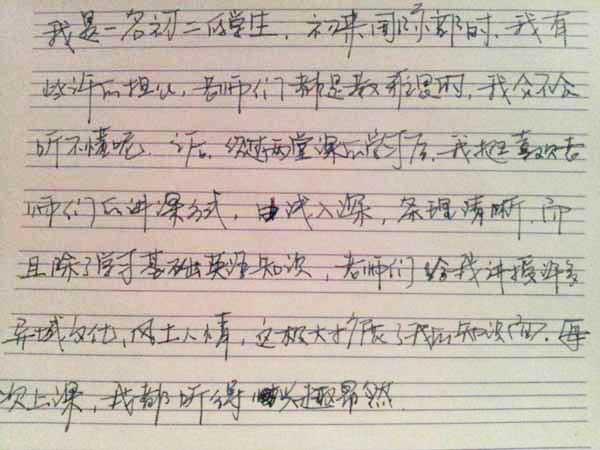 我是一名初二的学生，初来国际部时，我有
些许的担忧，老师们都是教雅思的，我会不会
听不懂呢。之后，经过两堂课的学习后，我挺喜欢老
师们的讲课方式，由浅入深，条理清晰，而
且除了学习基础英语知识，老师们给我讲授许多
异域文化，风土人情，这极大扩展了我的知识面。每
次上课，我都听得兴趣昂然。